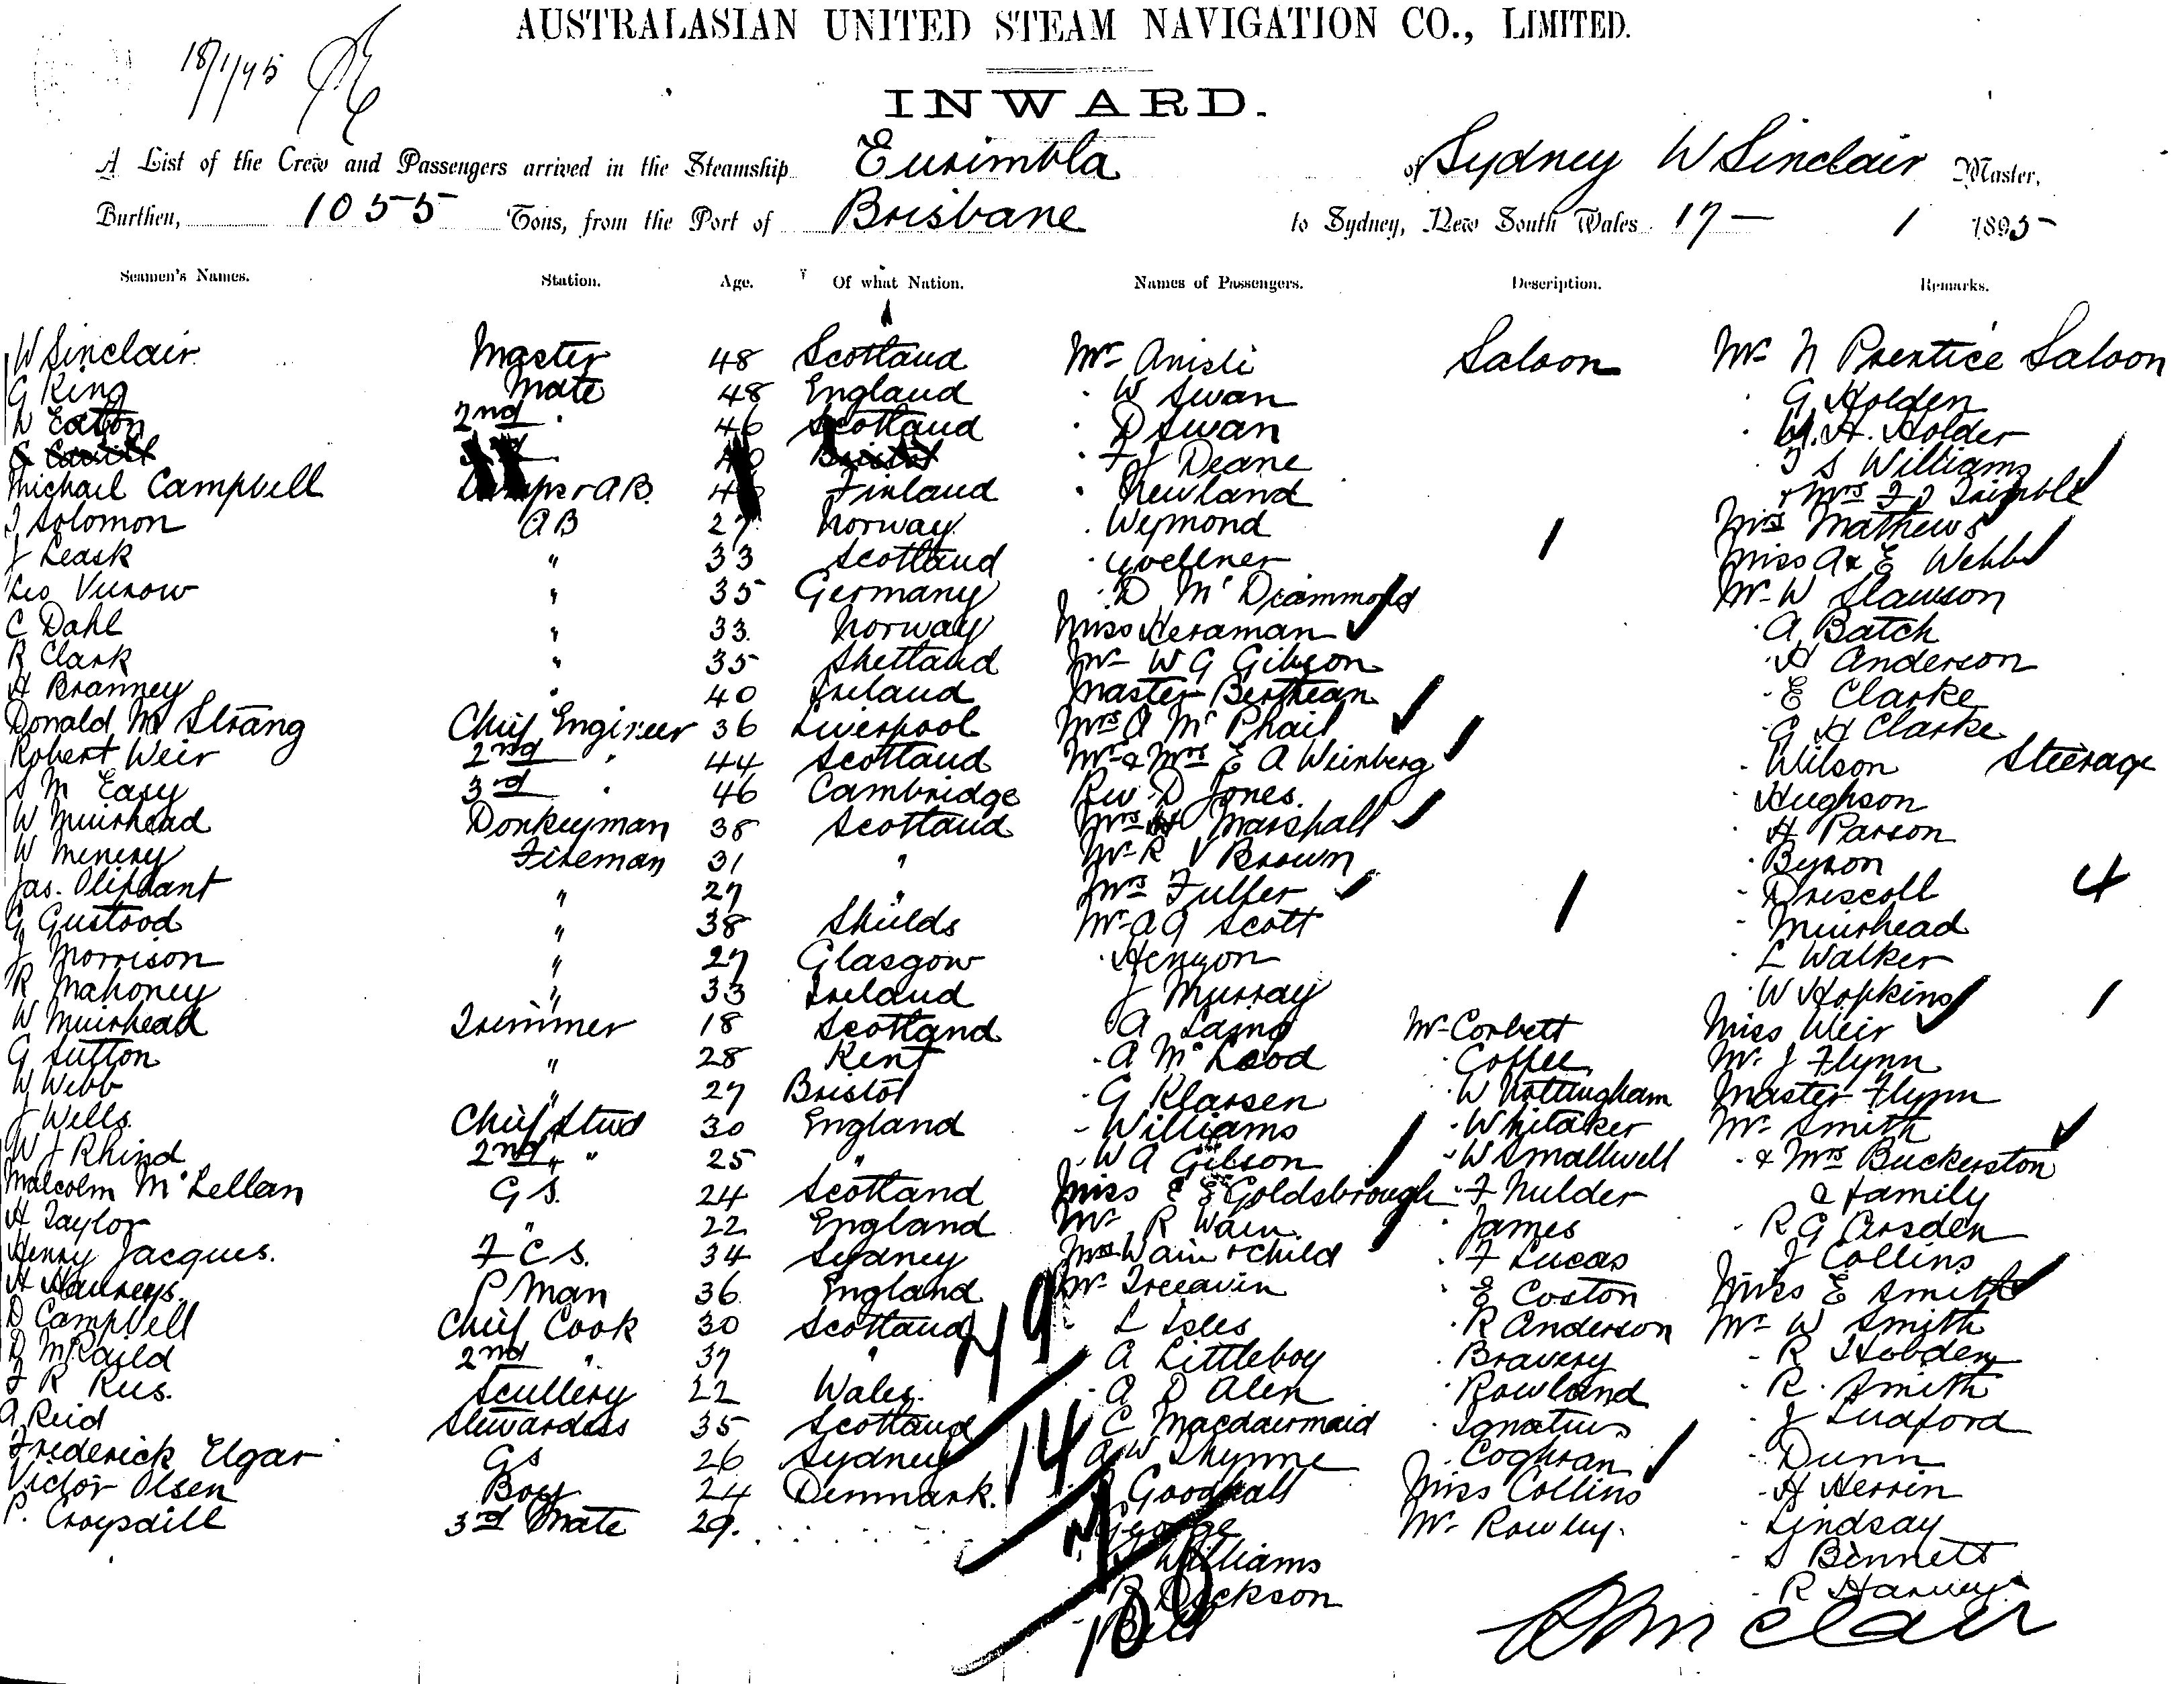 AUSTRALASIAN UNITED STEAM NAVIGATION CO., LIMITED.
18/1/95
INWARD.
A List of the Crew and Passengers arrived in the Steamship Eurimbla of Sydney W Sinclair Master,
Burthen, 1055 Tons, from the Port of Brisbane to Sydney, New South Wales 17 — 1 1895
Seamen's Names. Station. Age. Of what Nation. Names of Passengers. Description. Remarks.
W Sinclair Master 48 Scotland Mr Anisli Saloon Mr N Prentice Saloon
G King Mate 48 England " W Swan " G Holden
W Eaton 2nd " 46 Scotland " D Swan " W. H. Holder
" F J Deane " T S Williams
Michail Campbell Lamps & AB. Finland " Newland & Mrs F J Trimble
J Solomon AB 27 Norway " Wymond Mrs Mathews
J Leask " 33 Scotland " Miss A & E Webb
Leo Vurow " 35 Germany " D McDiammond Mr W Slawson
C Dahl " 33 Norway Miss Keraman " A Batch
R Clark " 35 Shetland Mr W G Gibson " H Anderson
H Branney " 40 Ireland Master Berthean " E Clarke
Donald Mc Strang Chief Engineer 36 Liverpool Mrs A McPhail " G H Clarke
Robert Weir 2nd " 44 Scotland Mr & Mrs E A Weinberg " Wilson Steerage
S M Easy 3rd " 46 Cambridge Rev D Jones. " Hughson
W Muirhead Donkeyman 38 Scotland Mrs Marshall " H Parson
W Menery Fireman 31 " Mr R V Brown " Byron
Jas. Oliphant " 27 " Mrs Fuller " Driscoll 4
G Gustood " 38 Shields Mr A G Scott " Muirhead
J Morrison " 27 Glasgow " Henyon " L Walker
R Mahoney " 33 Ireland J Murray " W Hopkins 1
W Muirhead Trimmer 18 Scotland A Laing Mr Corbett Miss Weir
G Sutton " 28 Kent " A McLeod " Coffee Mr J Flynn
W Webb " 27 Bristol " G Klarsen " W Nottingham Master Flynn
J Wells. Chief Stwd 30 England " Williams " Whitaker Mr Smith
W J Rhind 2nd " " 25 " " W A Gibson " W Smallwell " & Mrs Buckerston
Malcolm McLellan G S. 24 Scotland Miss E E Goldsbrough " F Nulder & family
H Taylor " 22 England Mr R Wain " James " R G Arsden
Henry Jacques. F C S. 34 Sydney Mrs Wain & Child " F Lucas J Collins
P Man 36 England Mr Treeavin " E Coston Miss E Smith
D Campbell Chief Cook 30 Scotland L Isles " R Anderson Mr W Smith
2nd " 37 " A Littleboy " Bravery " R Hobden
F R Rus. Scullery 22 Wales. " A D Alen " Rowland " R. Smith
A Reid Stewardess 35 Scotland " C Macdairmaid " Ignatius " J Ludford
Frederick Elgar GS 26 Sydney A W Thynne " Coghran " Dunn
Victor Olsen Boy 24 Denmark. Goodhall Miss Collins " H Herrin
P. Croysdill 3rd Mate 29. George Mr Rowley. " Lindsay
Williams " S Bennett
R Dickson " R Harvey
Bell